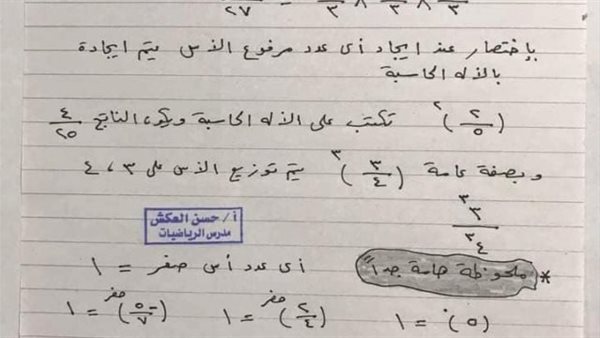 ٣ × ٣ × ٣ = ٢٧
بإختصار عند ايجاد أى عدد مرفوع الأس يتم ايجادة
بالآلة الحاسبة
(٢/٥)^٢ تكتب على الآله الحاسبة ويكون الناتج ٤/٢٥
وبصفة عامة (٣/٤)^٣ يتم توزيع الأس على ٣ ، ٤
٣^٣/٤^٣
أ/ حسن العكش
مدرس الرياضيات
* ملحوظة هامة جداً أى عدد أس صفر = ١
(٥)^٠ = ١ (٢/٤)^صفر = ١ (-٥/٧)^صفر = ١